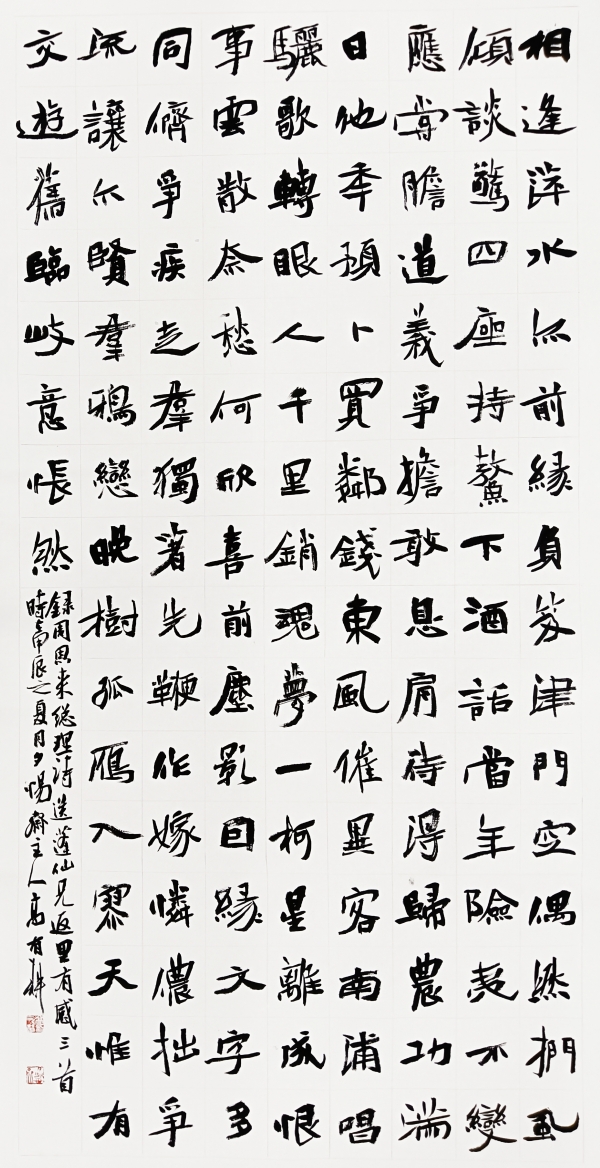 相逢萍水亦前緣負笈津門空偶然捫虱
傾談驚四座持螯下酒話當年險夷不變
應嘗膽道義爭擔敢息肩待得歸農功滿
日他年預卜買鄰錢東風催異客南浦唱
驪歌轉眼人千里銷魂夢一柯星離成恨
事雲散奈愁何欣喜前塵影因緣文字多
同儕爭疾走羣獨著先鞭作嫁憐儂拙爭
流讓尔賢羣鴉戀晚樹孤鴈入寥天惟有
交遊舊臨岐意悵然
錄周恩來總理詩送蓬仙兄返里有感三首
時甲辰之夏月夕惕齋主人高有祥